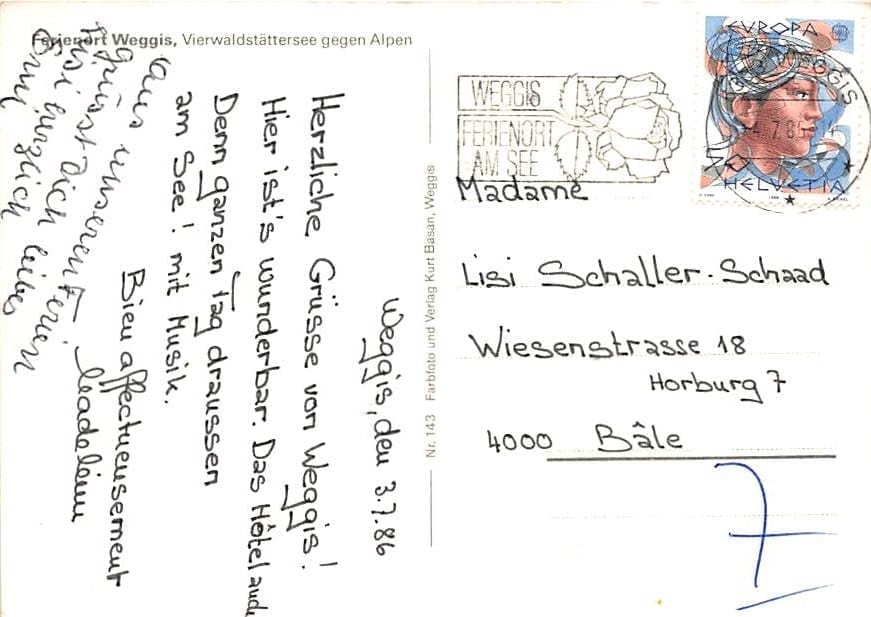 Ferienort Weggis, Vierwaldstättersee gegen Alpen
Weggis, den 3.7.86
Herzliche Grüsse von Weggis!
Hier ist's wunderbar. Das Hôtel auch
Denn ganzen Tag draussen
am See! mit Musik.
Bien affectueusement
Madeleine
Aus unseren Ferien
grüsst Dich
herzlich
Nr. 143 Farbfoto und Verlag Kurt Basan, Weggis
WEGGIS
FERIENORT
AM SEE
WEGGIS
EUROPA
HELVETIA
Madame
Lisi Schaller-Schaad
Wiesenstrasse 18
Horburg 7
4000 Bâle
7